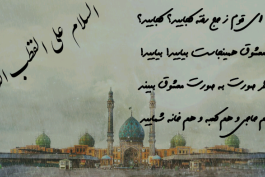 السلام علی القطب
ای قوم ز حج رفته کجایید؟ کجایید؟
معشوق همینجاست بیایید بیایید
صورت به صورت معشوق بینید
حاجی و هم کعبه و هم خانه شمایید